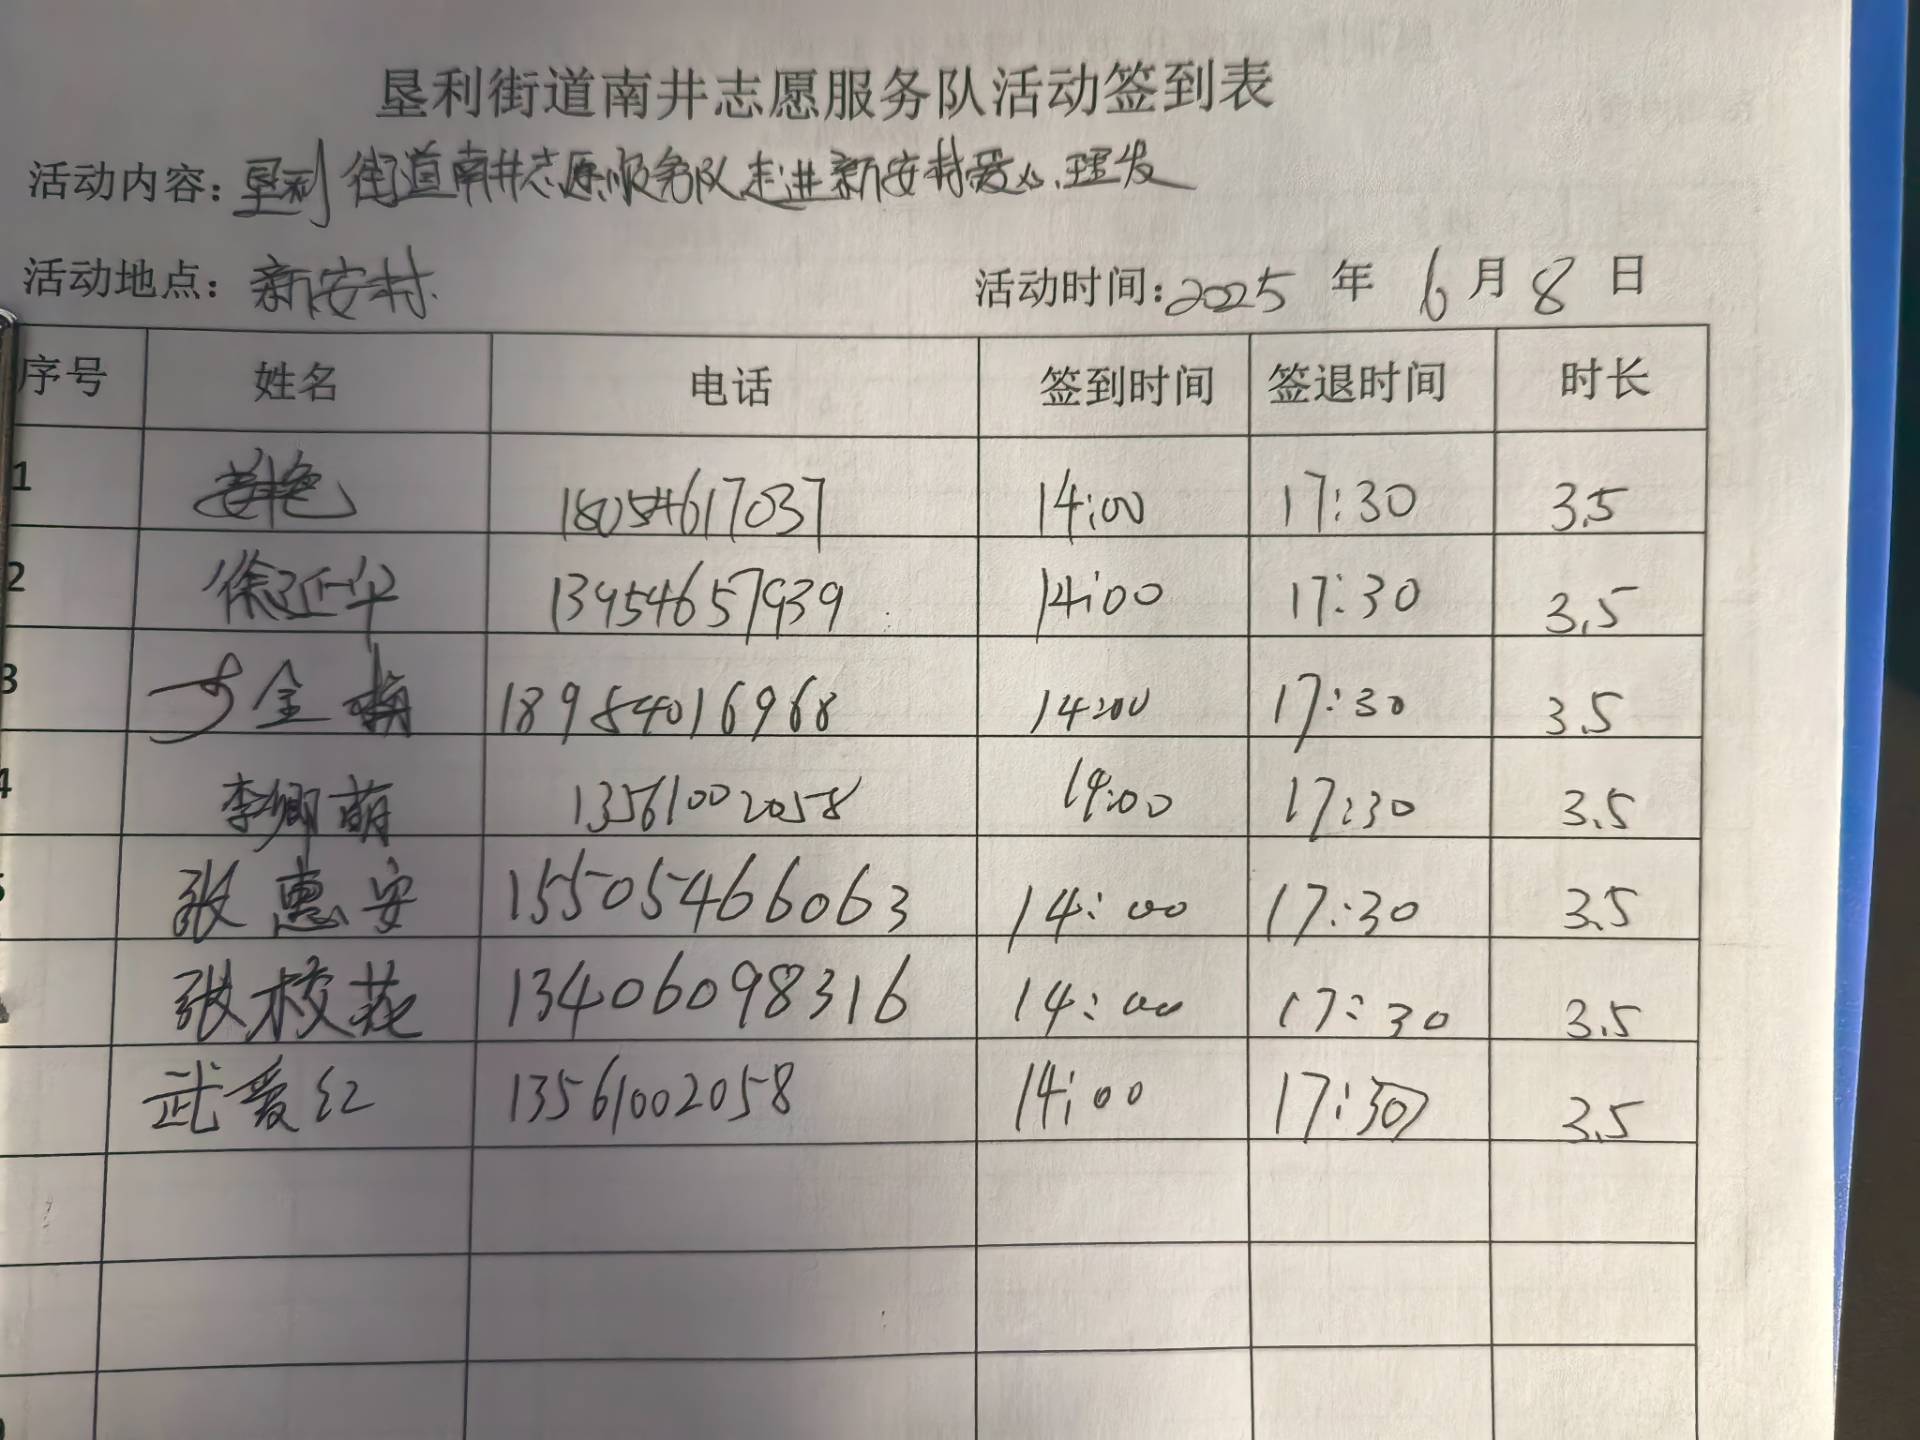 垦利街道南井志愿服务队活动签到表
活动内容：垦利街道南井志愿服务队走进新安村爱心理发
活动地点：新安村 活动时间：2025 年 6 月 8 日
序号 姓名 电话 签到时间 签退时间 时长
1 姜艳 18054617037 14:00 17:30 3.5
2 徐延华 13954657939 14:00 17:30 3.5
3 金梅 18954016968 14:00 17:30 3.5
4 李卿萌 13561002058 14:00 17:30 3.5
5 张惠安 15505466063 14:00 17:30 3.5
张校花 13406098316 14:00 17:30 3.5
武爱红 13561002058 14:00 17:30 3.5